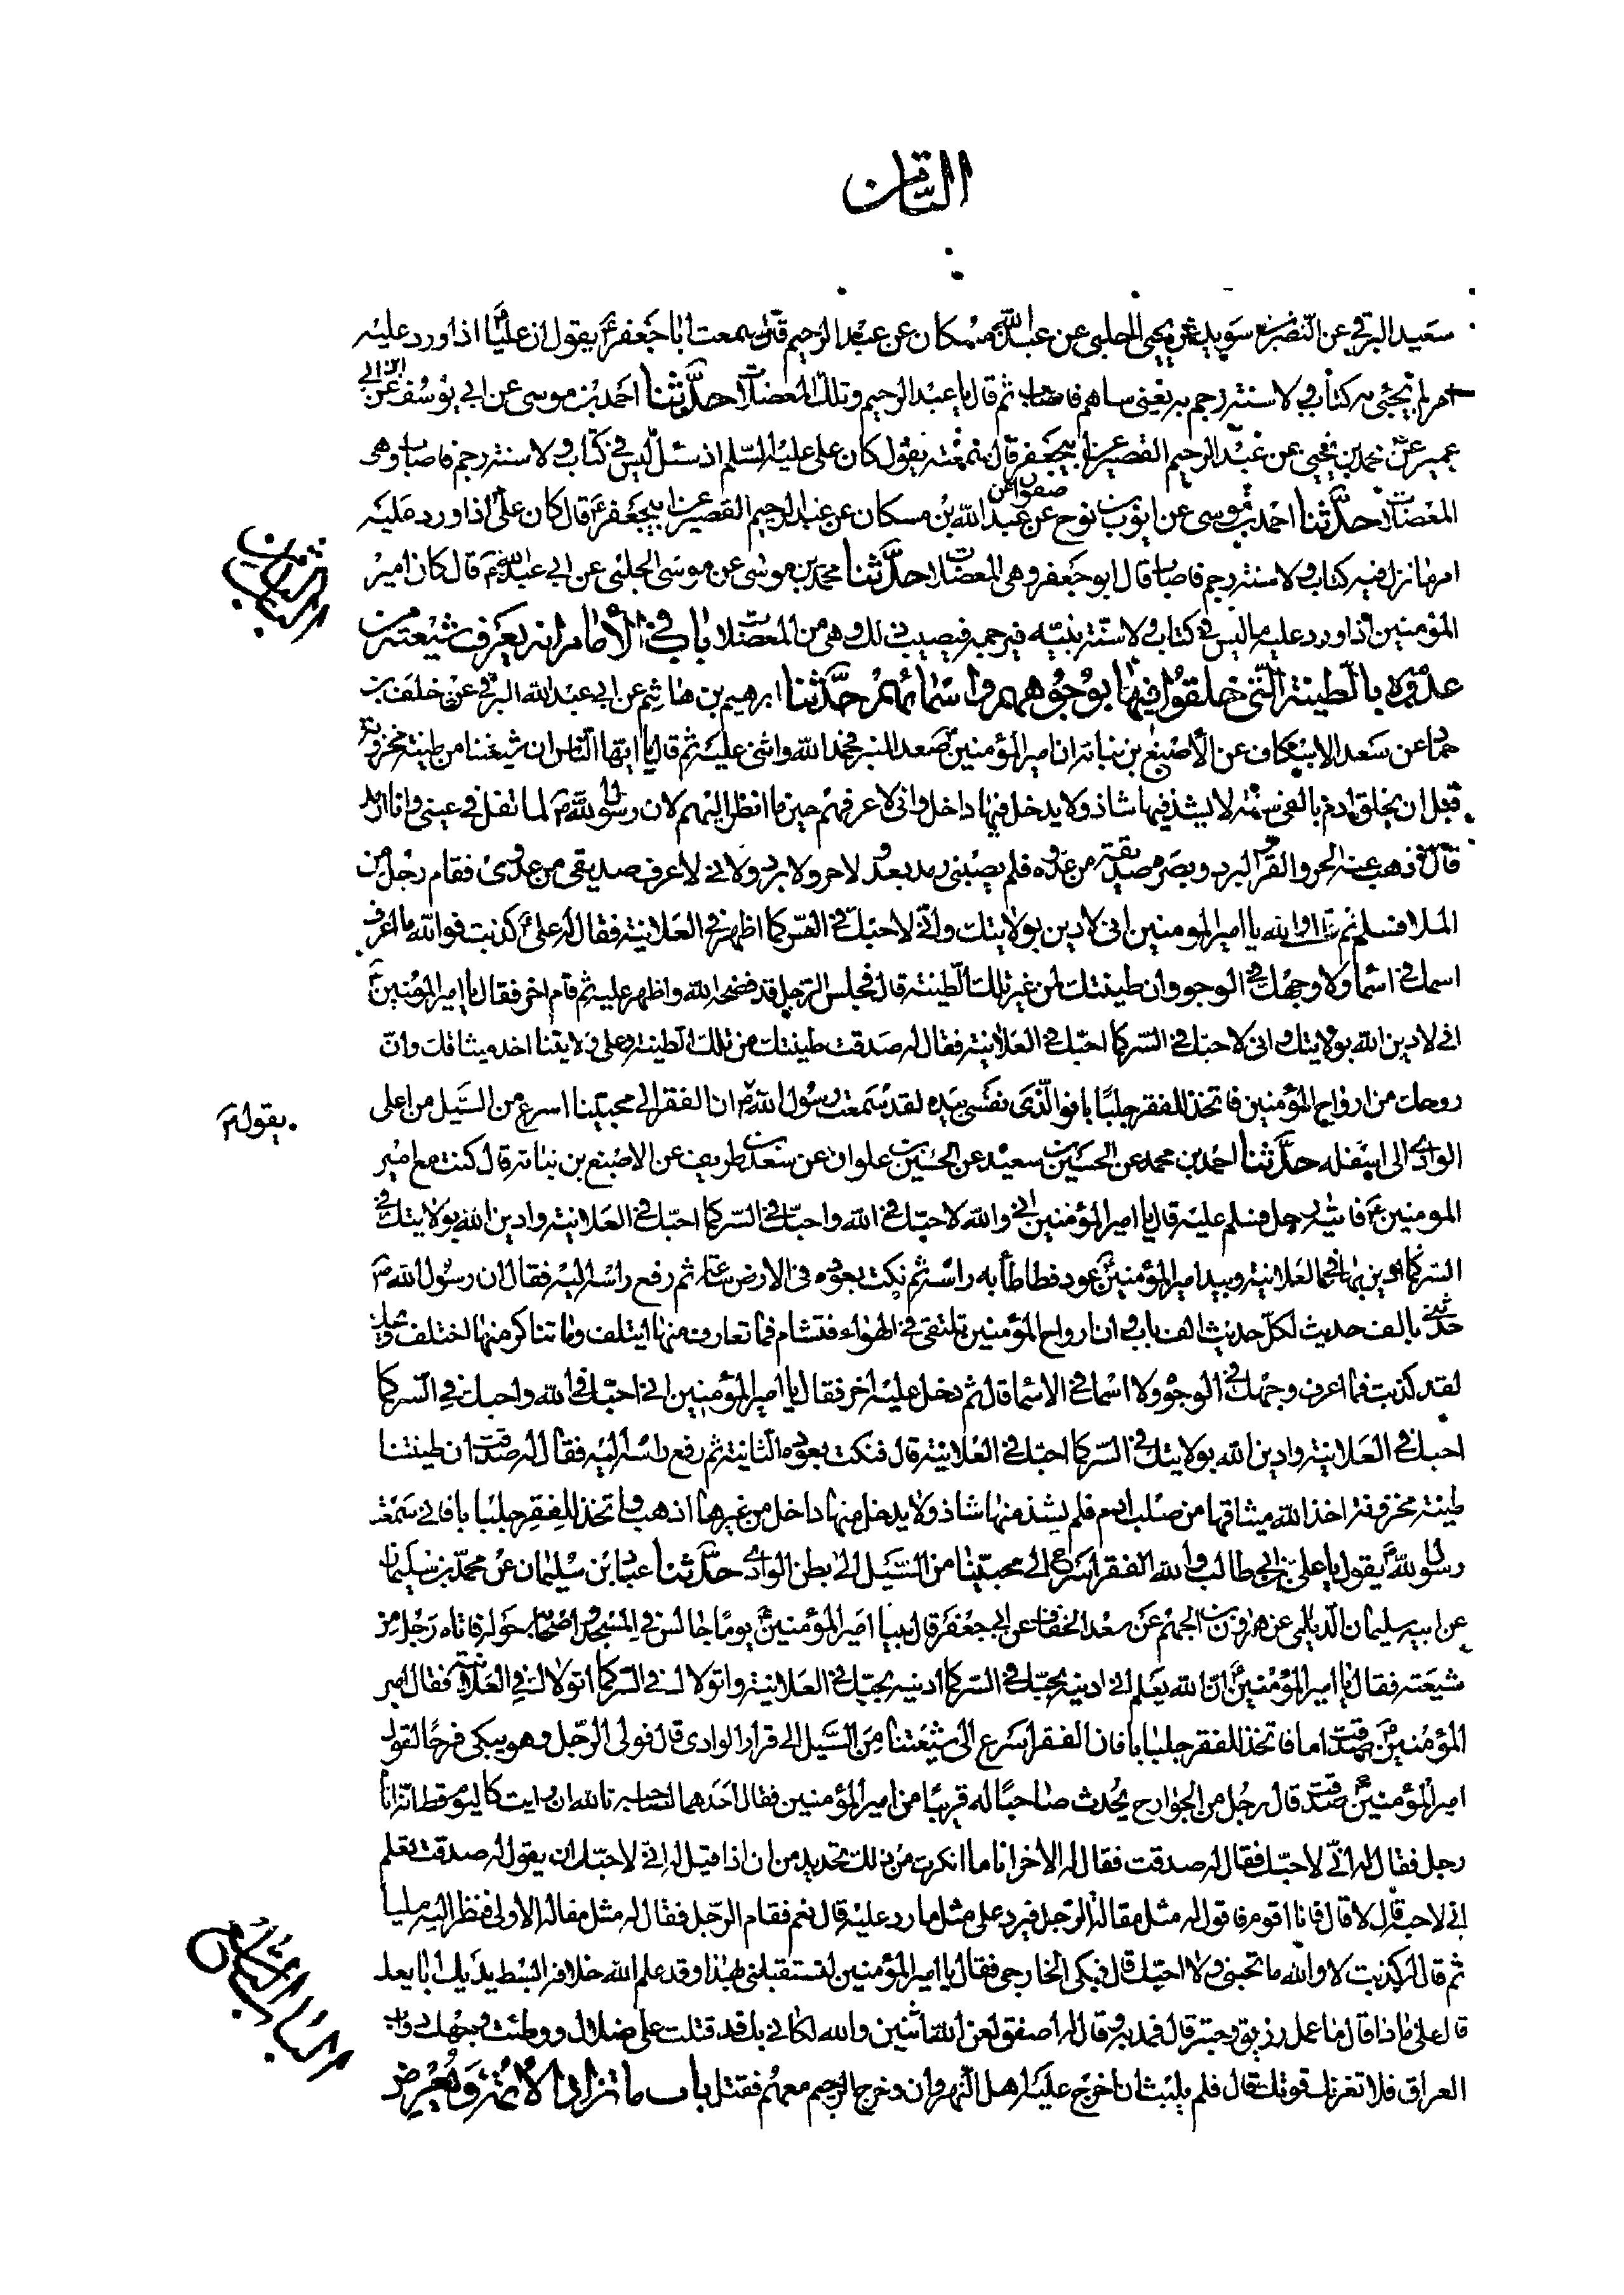 الثامن
سعيد البرقي عن النضر بن سويد عن يحيى الحلبي عن عبد الله بن مسكان عن عبد الرحيم قال سمعت ابا جعفر ع يقول ان عليا ع اذا ورد عليه
امر لم يجئ به كتاب ولا سنة رجم به يعني ساهم فاصاب ثم قال يا عبد الرحيم وتلك المعضلات حدثنا احمد بن موسى عن ابي يوسف عن ابن ابي
عمير عن محمد بن يحيى عن عبد الرحيم القصير عن ابي جعفر قال سمعته يقول كان علي عليه السلم اذ سئل ليس في كتاب ولا سنة رجم فاصاب وهى
المعضلات حدثنا احمد بن موسى عن ايوب بن نوح عن صفوان عن عبد الله بن مسكان عن عبد الرحيم القصير عن ابي جعفر ع قال كان علي اذا ورد عليه
امر ما نزل فيه كتاب ولا سنة رجم فاصاب قال ابو جعفر وهى المعضلات حدثنا محمد بن موسى عن موسى الحلبي عن ابي عبد الله ع قال كان امير
الباب الثامن
المؤمنين اذا ورد عليه ما ليس في كتاب ولا سنة نبيه فيرجم فيصيب ذلك وهى من المعضلات باب في الامام انه يعرف شيعته من
عدوه بالطينة التي خلقوا فيها بوجوههم واسمائهم حدثنا ابرهيم بن هاشم عن ابي عبد الله البرقي عن خلف بن
حماد عن سعد الاسكاف عن الاصبغ بن نباته ان امير المؤمنين صعد المنبر فحمد الله واثنى عليه ثم قال يا ايها الناس ان شيعتنا من طينة مخزونة
قبل ان يخلق ادم بالفي سنة لا يشذ فيها شاذ ولا يدخل فيها داخل واني لاعرفهم حين ما انظر اليهم لان رسول الله ص لما تفل في عيني وانا ارمد
قال اذهب عنه الحر والقر والبرد وبصره صديقه من عدوه فلم يصبني رمد بعد ولا حر ولا برد واني لاعرف صديقي من عدوي فقام رجل من
الملا فسلم ثم قال والله يا امير المومنين اني لادين بولايتك واني لاحبك في السر كما اظهر في العلانية فقال له علي ع كذبت فوالله ما اعرف
اسمك في اسما ولا وجهك في الوجوه وان طينتك لمن غير تلك الطينة قال فجلس الرجل قد فضحه الله واظهر عليه ثم قام اخر فقال يا امير المؤمنين ع
اني لادين الله بولايتك واني لاحبك في السر كما احبك في العلانية فقال له صدقت طينتك من تلك الطينة وعلى ولايتنا اخذ ميثاقك وان
روحك من ارواح المؤمنين فاتخذ للفقر جلبابا فوالذي نفسي بيده لقد سمعت رسول الله ص ان الفقر الى محبينا اسرع من السيل من اعلى
يقول م
الوادي الى اسفله حدثنا احمد بن محمد عن الحسين بن سعيد عن الحسين بن علوان عن سعد بن طريف عن الاصبغ بن نباته قال كنت مع امير
المومنين ع فاتيه رجل فسلم عليه قال يا امير المؤمنين اني والله لاحبك في الله واحبك في السر كما احبك في العلانية وادين الله بولايتك في
السر كما ادين بها في العلانية وبيد امير المؤمنين عود فطاطأ به راسه ثم نكت بعوده في الارض ساعة ثم رفع راسه اليه فقال ان رسول الله ص
حدثني بالف حديث لكل حديث الف باب وان ارواح المؤمنين تلتقي في الهواء فتشام فما تعارف منها ايتلف وما تناكر منها اختلف
لقد كذبت فما اعرف وجهك في الوجوه ولا اسمك في الاسما قال ثم دخل عليه اخر فقال يا امير المؤمنين اني احبك في الله واحبك في السر كما
احبك في العلانية وادين الله بولايتك في السر كما احبك في العلانية قال فنكت بعوده الثانية ثم رفع راسه اليه فقال له صدقت ان طينتنا
طينة مخزونة اخذ الله ميثاقها من صلب ادم فلم يشذ منها شاذ ولا يدخل منها داخل من غيرها اذهب واتخذ للفقر جلبابا فاني سمعت
رسول الله ص يقول يا علي بن ابي طالب والله الفقر اسرع الى محبينا من السيل الى بطن الوادي حدثنا عباد بن سليمان عن محمد بن سليمان
عن ابيه سليمان الديلمي عن هارون بن الجهم عن سعد الخفاف عن ابي جعفر قال بينا امير المؤمنين ع يوما جالس في المسجد واصحابه حوله فاتاه رجل من
شيعته فقال يا امير المؤمنين ع ان الله يعلم اني ادينه بحبك في السر كما ادينه بحبك في العلانية واتولاك في السر كما اتولاك في العلانية فقال امير
المؤمنين ع صدقت اما فاتخذ للفقر جلبابا فان الفقر اسرع الى شيعتنا من السيل الى قرار الوادي قال فولى الرجل وهو يبكي فرحا لقول
امير المؤمنين ع صدقت قال رجل من الخوارج يحدث صاحبا له قريبا من امير المؤمنين فقال احدهما لصاحبه تالله ان رايت كاليوم قط انه اتاه
رجل فقال له اني لاحبك فقال له صدقت فقال له الاخر انا ما انكرت من ذلك تجد بد من ان اذا قيل له اني لاحبك ان يقول له صدقت تعلم
اني لاحبه قال لا قال فانا اقوم فاقول له مثل مقالة الرجل فيرد علي مثل ما رد عليه قال نعم فقام الرجل فقال له مثل مقالة الاولى فنظر اليه مليا
الباب التاسع
ثم قال له كذبت لا والله ما تحبني ولا احبك قال فبكى الخارجي فقال يا امير المؤمنين لتستقبلني بهذا وقد علم الله خلافه ابسط يديك ابايعك
قال علي ما ذا قال ما عمل رزيق وحبتر قال فمد يده وقال له اصفق لعن الله اثنين والله لكاني بك قد قتلت على ضلال ووطئت وجهك دواب
العراق فلا تغرنك قوتك قال فلم يلبث ان خرج عليه اهل النهروان وخرج الرجيم معهم فقتل باب ما تزاد الائمة ويعرض